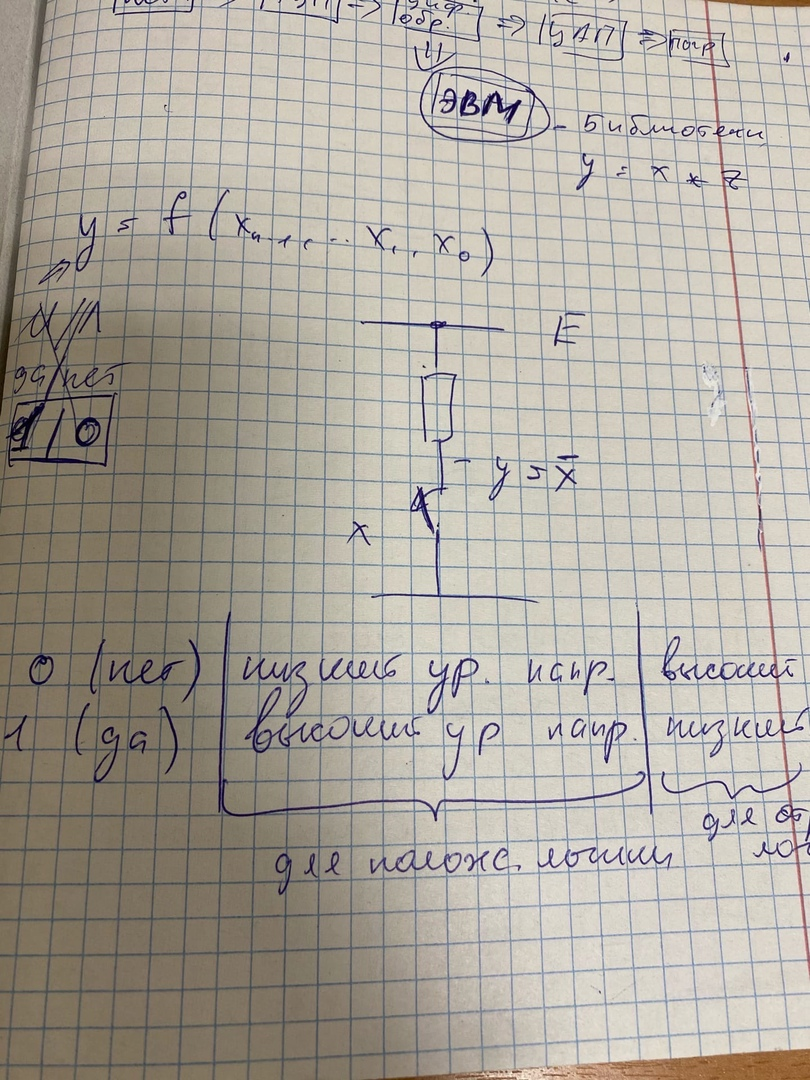 обр. ⇒ ЦАП ⇒
ЭВМ - Библиотеки
y = x * z
y = f (xₙ₋₁, ... x₁, x₀)
И Л
да нет
1 / 0
E
- y = x̄
x
0 (нет) | низкий ур. напр. | высокий
1 (да) | высокий ур напр. | низкий
для полож. логики
для от